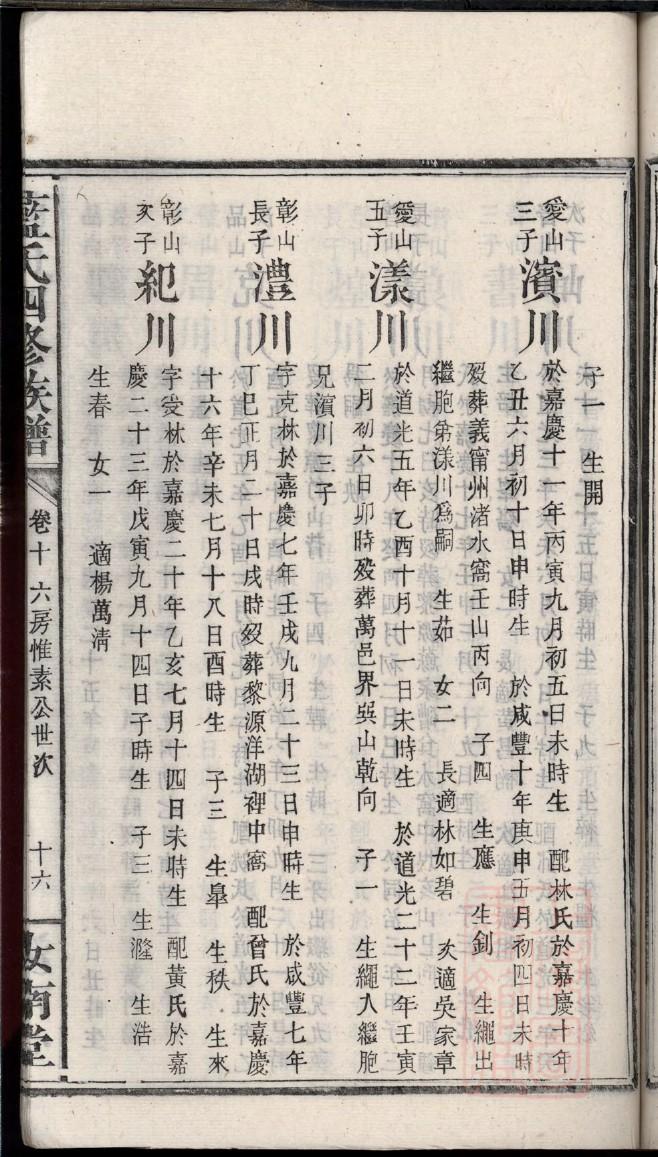 子一　生開
愛山三子濱川　於嘉慶十一年丙寅九月初五日未時生　配林氏於嘉慶十年
乙丑六月初十日申時生　於咸豐十年庚申五月初四日未時
歿葬義甯州渚水窩壬山丙向　子四　生應　生釗　生繩出
繼胞弟漾川爲嗣　生茹　女二　長適林如碧　次適吳家章
愛山五子漾川　於道光五年乙酉十月十一日未時生　於道光二十二年壬寅
二月初六日卯時歿葬萬邑界吳山乾向　子一　生繩入繼胞
兄濱川三子
彰山長子澧川　字克林於嘉慶七年壬戌九月二十三日申時生　於咸豐七年
丁巳正月二十日戌時歿葬黎源洋湖裡中窩　配曾氏於嘉慶
十六年辛未七月十八日酉時生　子三　生皋　生秩　生來
彰山次子紀川　字受林於嘉慶二十年乙亥七月十四日未時生　配黃氏於嘉
慶二十三年戊寅九月十四日子時生　子三　生漋　生浩
生春　女一　適楊萬清
藍氏四修族譜　卷十　六房惟素公世次　十六　汝南堂